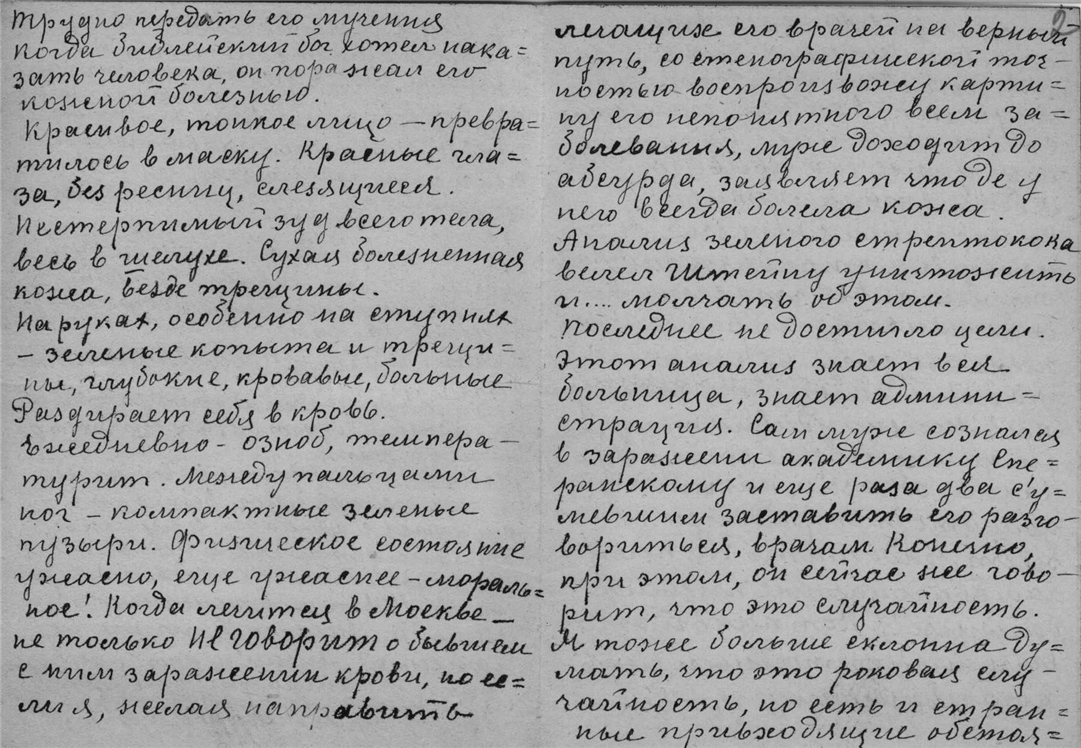 Трудно передать его мучения
когда библейский бог хотел нака=
зать человека, он поражал его
кожной болезнью.
Красивое, тонкое лицо — превра=
тилось в маску. Красные гла=
за, без ресниц, слезящиеся.
Нестерпимый зуд всего тела,
весь в шелухе. Сухая болезненная
кожа, везде трещины.
На руках, особенно на ступнях
– зеленые копыта и трещи=
ны, глубокие, кровавые, больные
Раздирает себя в кровь.
Ежедневно – озноб, темпера–
турит. Между пальцами
ног – компактные зеленые
пузыри. Физическое состояние
ужасно, еще ужаснее – мораль=
ное! Когда лечится в Москве –
не только не говорит о бывшем
с ним заражении крови, но ес=
ли я, желая направить
2
лечащих его врачей на верный
путь, со стенографической точ–
ностью воспроизвожу карти=
ну его непонятного всем за=
болевания, муж доходит до
абсурда, заявляет что де у
него всегда болела кожа.
Анализ зеленого стрептокока
велел Штейну уничтожить
и.... молчать об этом.
Последнее не достигло цели.
Этот анализ знает вся
больница, знает админи=
страция. Сам муж сознался
в заражении академику Спе=
ранскому и еще раза два с'у–
мевшим заставить его разго–
вориться, врачам. Конечно,
при этом, он сейчас же гово–
рит, что это случайность.
Я тоже больше склонна ду=
мать, что это роковая слу–
чайность, но есть и стран=
ные привходящие обстоя=